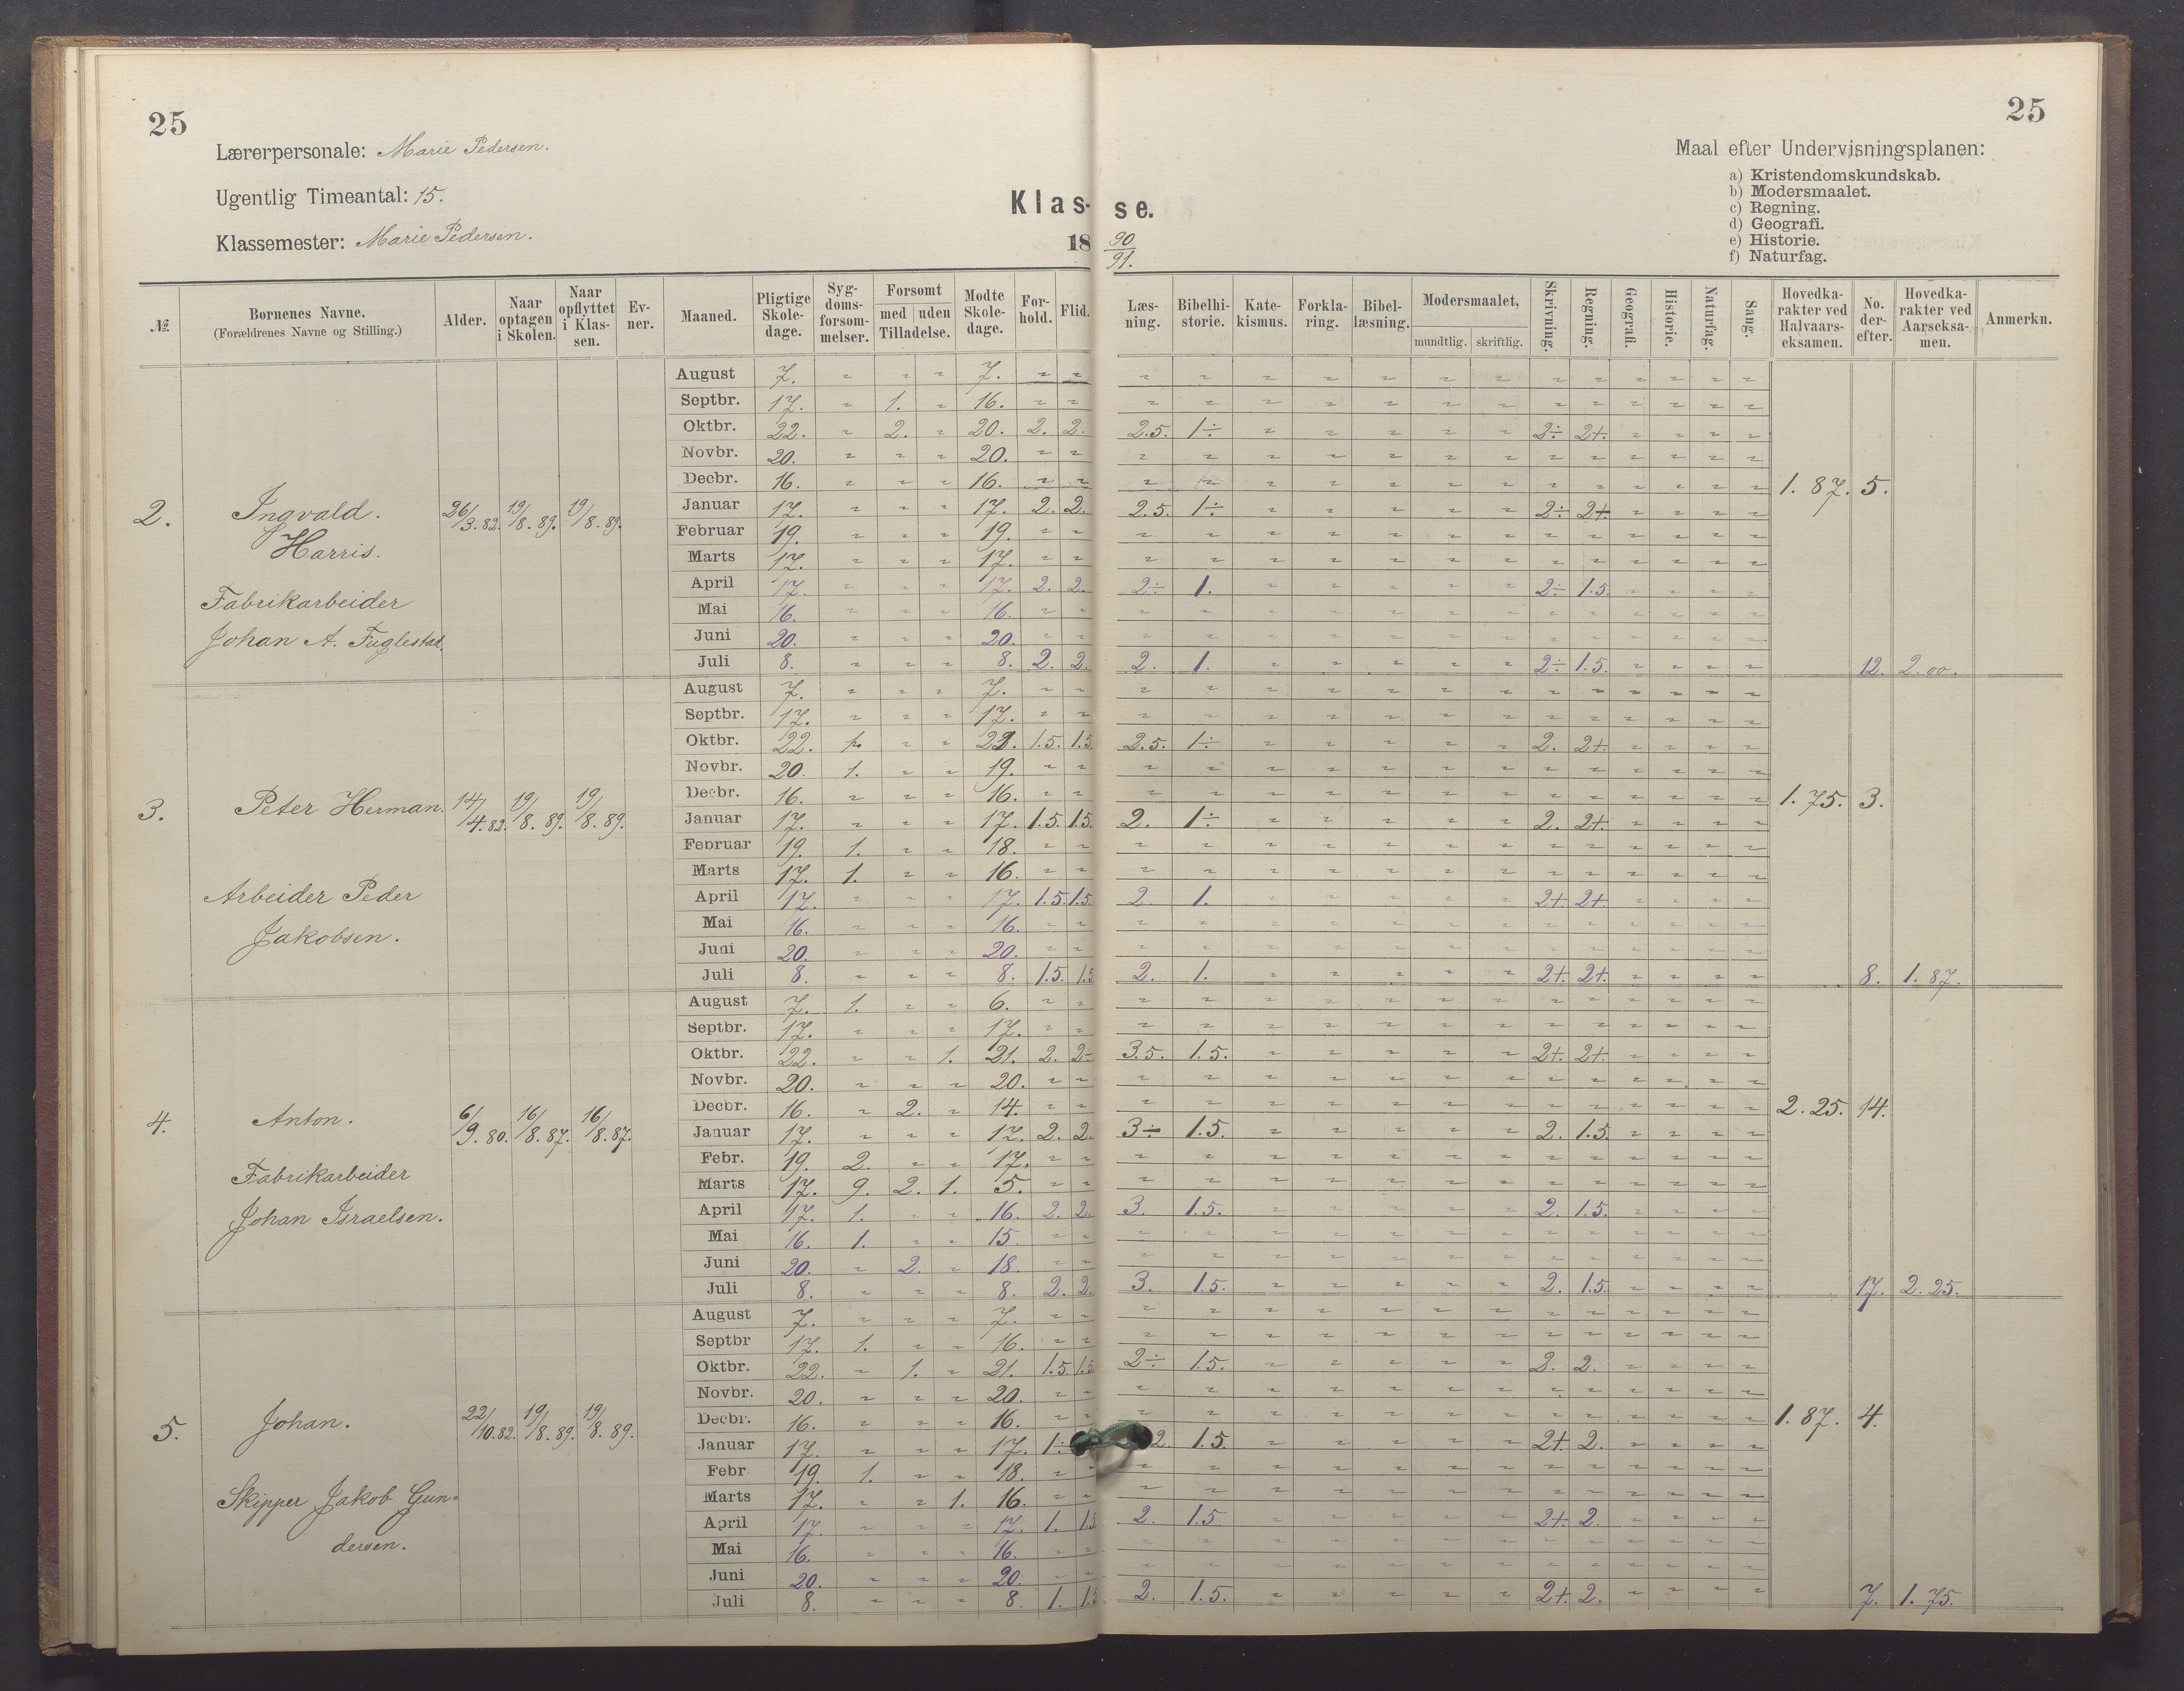 25
25
Lærerpersonale: Marie Pedersen.
Ugentlig Timeantal: 15.
Klassemester: Marie Pedersen.
Klas- se.
18 90/91.
Maal efter Undervisningsplanen:
a) Kristendomskundskab.
b) Modersmaalet.
c) Regning.
d) Geografi.
e) Historie.
f) Naturfag.
№ | Børnenes Navne. (Forældrenes Navne og Stilling.) | Alder. | Naar optagen i Skolen. | Naar opflyttet i Klassen. | Evner. | Maaned. | Pligtige Skoledage. | Sygdomsforsommelser. | Forsomt med uden Tilladelse. | Mødte Skoledage. | Forhold. | Flid. | Læsning. | Bibelhistorie. | Katekismus. | Forklaring. | Bibellæsning. | Modersmaalet, mundtlig. skriftlig. | Skrivning. | Regning. | Geografi. | Historie. | Naturfag. | Sang. | Hovedkarakter ved Halvaarseksamen. | No. derefter. | Hovedkarakter ved Aarseksamen. | Anmerkn.
2. Ingvald. Harris. 26/3.82. 19/8.89. 19/8.89.
Fabrikarbeider
Johan A. Fuglestad.
August 7. - - - 7. - -
Septbr. 17. - 1. - 16. - -
Oktbr. 22. - 2. - 20. 2. 2. 2.5. 1÷ 2÷ 2+.
Novbr. 20. - - - 20. - -
Decbr. 16. - - - 16. - - 1.87. 5.
Januar 17. - - - 17. 2. 2. 2.5. 1÷ 2÷ 2+.
Februar 19. - - - 19. - -
Marts 17. - - - 17. - -
April 17. - - - 17. 2. 2. 2÷ 1. 2÷ 1.5.
Mai 16. - - - 16. - -
Juni 20. - - - 20. - -
Juli 8. - - - 8. 2. 2. 2. 1. 2÷ 1.5. 12. 2.00.
3. Peter Herman. 14/4.82. 19/8.89. 19/8.89.
Arbeider Peder
Jakobsen.
August 7. - - - 7. - -
Septbr. 17. - - - 17. - -
Oktbr. 22. - - 1.5. 1.5. 2.5. 1÷ 2. 2+.
Novbr. 20. 1. - - 19. - -
Decbr. 16. - - - 16. - - 1.75. 3.
Januar 17. - - - 17. 1.5. 1.5. 2. 1÷ 2. 2+.
Februar 19. 1. - - 18. - -
Marts 17. 1. - - 16. - -
April 17. - - - 17. 1.5. 1.5. 2. 1. 2+. 2+.
Mai 16. - - - 16. - -
Juni 20. - - - 20. - -
Juli 8. - - - 8. 1.5. 1.5 2. 1. 2+. 2+. 8. 1.87.
4. Anton. 6/9.80. 16/8.87. 16/8.87.
Fabrikarbeider
Johan Israelsen.
August 7. 1. - - 6. - -
Septbr. 17. - - - 17. - -
Oktbr. 22. - - 1. 21. 2. 2÷ 3.5. 1.5. 2+. 2+.
Novbr. 20. - - - 20. - -
Decbr. 16. - 2. - 14. - - 2.25. 14.
Januar 17. - - - 17. 2. 2. 3÷ 1.5. 2. 1.5.
Febr. 19. 2. - - 17. - -
Marts 17. 9. 2. 1. 5. - -
April 17. 1. - - 16. 2. 2. 3. 1.5. 2. 1.5.
Mai 16. 1. - - 15. - -
Juni 20. - 2. - 18. - -
Juli 8. - - - 8. 2. 2. 3. 1.5. 2. 1.5. 17. 2.25.
5. Johan. 22/10.82. 19/8.89. 19/8.89.
Skipper Jakob Gun-
dersen.
August 7. - - - 7. - -
Septbr 17. 1. - - 16. - -
Oktbr. 22. - 1. - 21. 1.5. 1.5 2÷ 1.5. 2. 2.
Novbr. 20. - - - 20. - -
Decbr. 16. - - - 16. - - 1.87. 4.
Januar 17. - - - 17. 1÷ 2. 1.5. 2+. 2.
Febr 19. 1. - - 18. - -
Marts 17. - - 1. 16. - -
April 17. - - - 17. 1. 1.5 2. 1.5 2+. 2.
Mai 16. - - - 16. - -
Juni 20. - - - 20. - -
Juli 8. - - - 8. 1. 1.5 2. 1.5. 2+. 2. 7. 1.75.